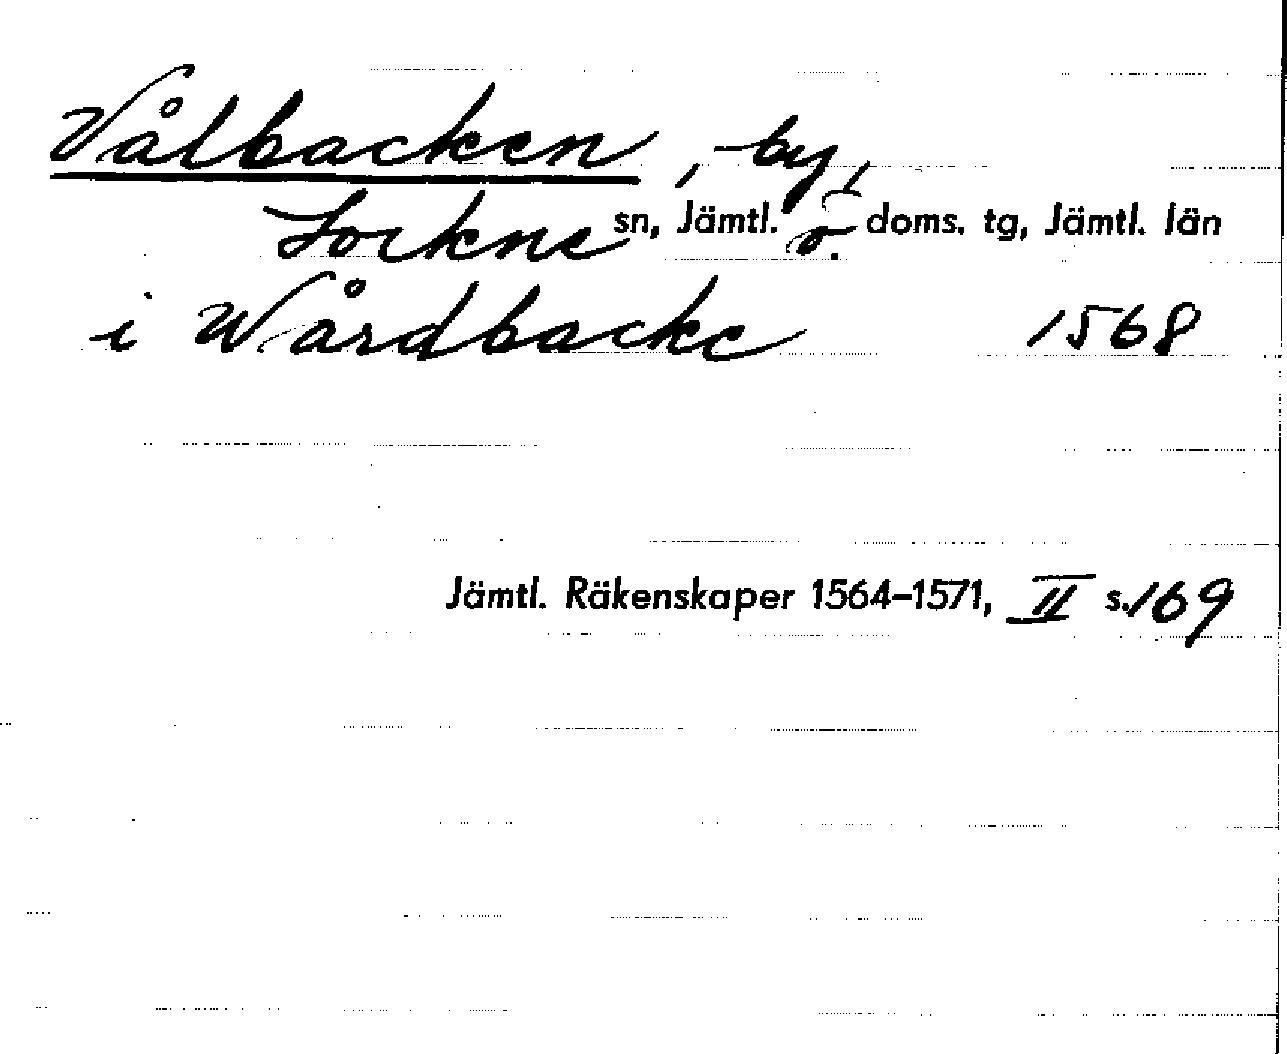 Vålbacken, by,
Lockne sn, Jämtl. ö. doms. tg, Jämtl. län
i Wårdbacke 1568
Jämtl. Räkenskaper 1564–1571, II s. 169